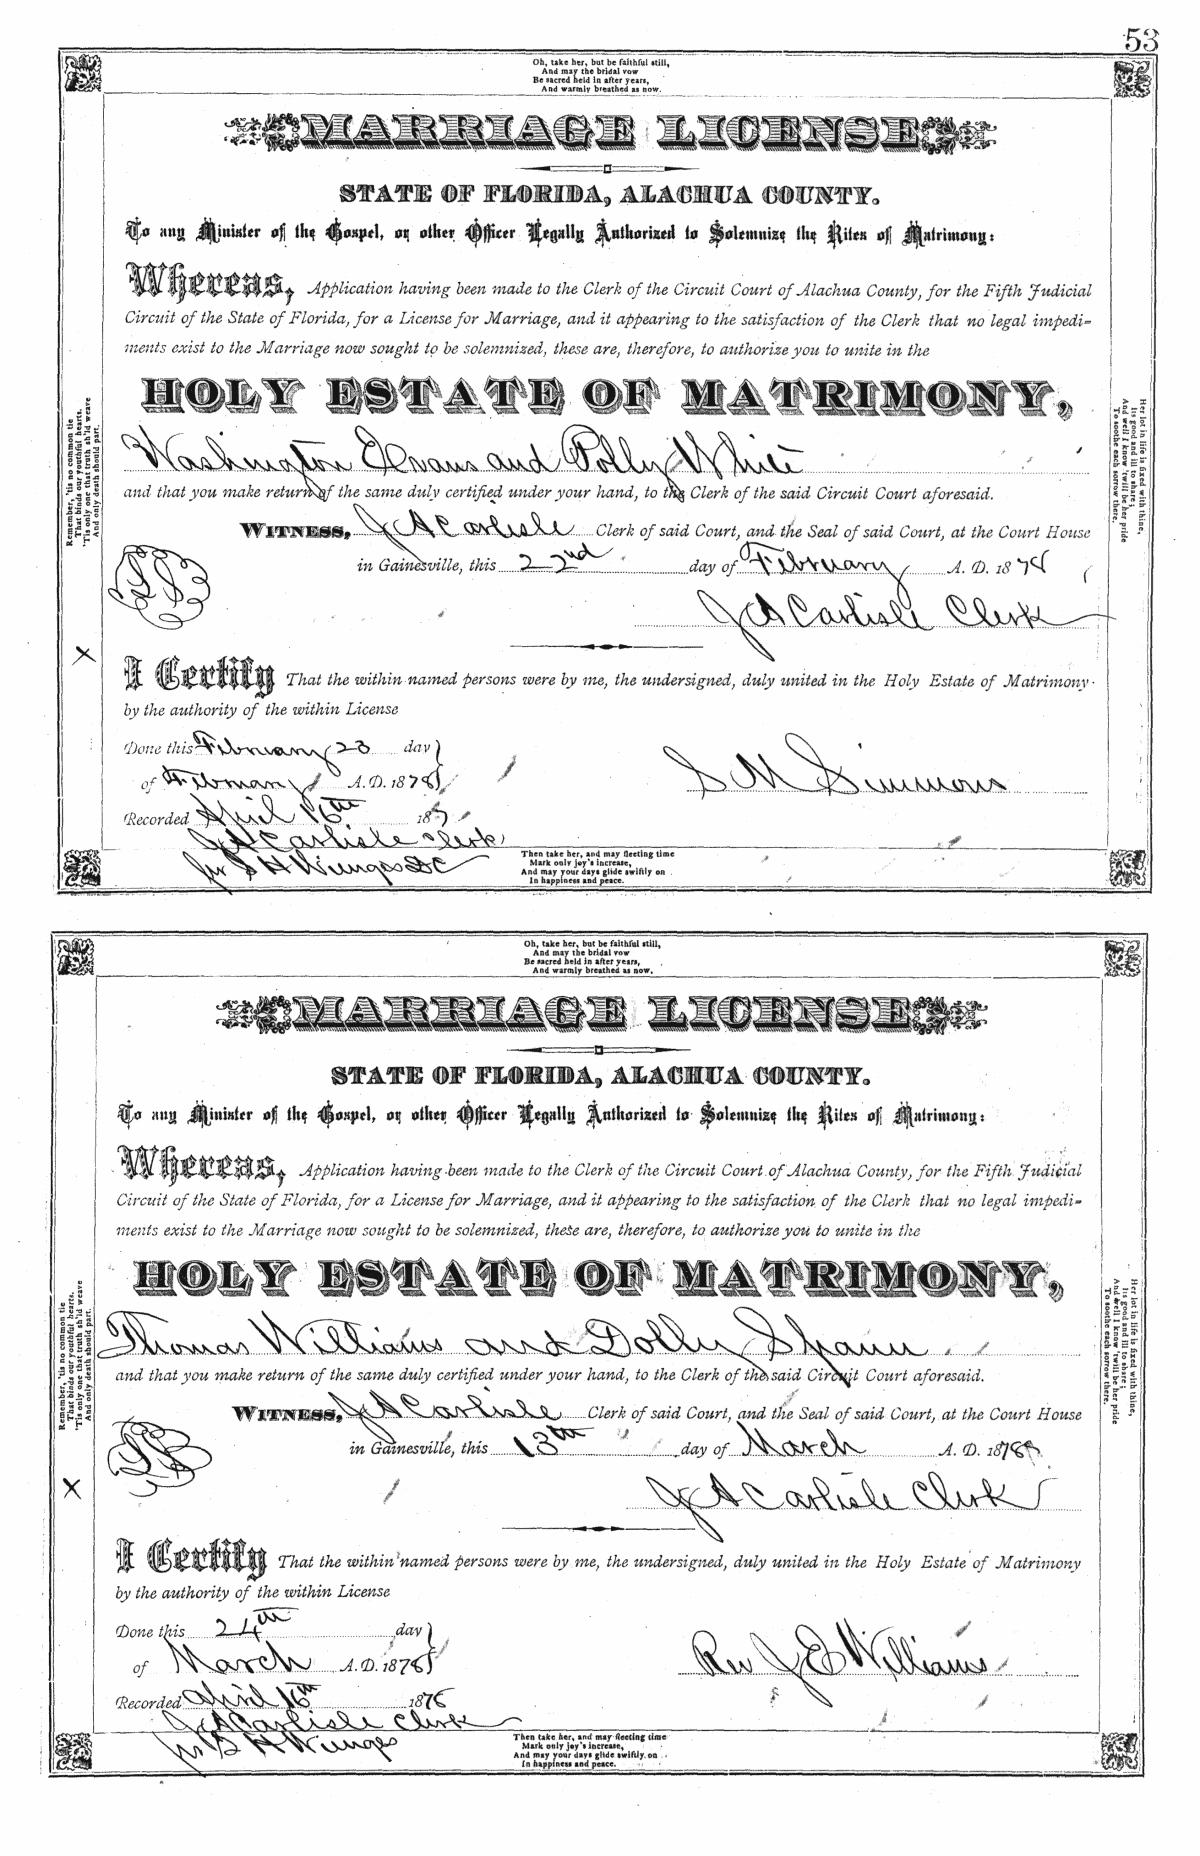 53
Oh, take her, but be faithful still,
And may the bridal vow
Be sacred held in after years,
And warmly breathed as now.
MARRIAGE LICENSE
STATE OF FLORIDA, ALACHUA COUNTY.
To any Minister of the Gospel, or other Officer Legally Authorized to Solemnize the Rites of Matrimony:
Whereas, Application having been made to the Clerk of the Circuit Court of Alachua County, for the Fifth Judicial
Circuit of the State of Florida, for a License for Marriage, and it appearing to the satisfaction of the Clerk that no legal impedi-
ments exist to the Marriage now sought to be solemnized, these are, therefore, to authorize you to unite in the
HOLY ESTATE OF MATRIMONY,
Washington Evans and Polly White
and that you make return of the same duly certified under your hand, to the Clerk of the said Circuit Court aforesaid.
WITNESS, J A Carlisle Clerk of said Court, and the Seal of said Court, at the Court House
in Gainesville, this 22nd day of February A. D. 1878
J A Carlisle Clerk
I Certify That the within named persons were by me, the undersigned, duly united in the Holy Estate of Matrimony
by the authority of the within License
Done this February 23 day
of February A. D. 1878
S M Simmons
Recorded April 16th 187
J A Carlisle Clerk
Remember, 'tis no common tie
That binds our youthful hearts,
'Tis only one that truth sh'ld weave
And only death should part.
Her lot in life is fixed with thine,
Its good and ill to share;
And well I know 'twill be her pride
To soothe each sorrow there.
Then take her, and may fleeting time
Mark only joy's increase,
And may your days glide swiftly on
In happiness and peace.
Oh, take her, but be faithful still,
And may the bridal vow
Be sacred held in after years,
And warmly breathed as now.
MARRIAGE LICENSE
STATE OF FLORIDA, ALACHUA COUNTY.
To any Minister of the Gospel, or other Officer Legally Authorized to Solemnize the Rites of Matrimony:
Whereas, Application having been made to the Clerk of the Circuit Court of Alachua County, for the Fifth Judicial
Circuit of the State of Florida, for a License for Marriage, and it appearing to the satisfaction of the Clerk that no legal impedi-
ments exist to the Marriage now sought to be solemnized, these are, therefore, to authorize you to unite in the
HOLY ESTATE OF MATRIMONY,
Thomas Williams and Dolly Spann
and that you make return of the same duly certified under your hand, to the Clerk of the said Circuit Court aforesaid.
WITNESS, J A Carlisle Clerk of said Court, and the Seal of said Court, at the Court House
in Gainesville, this 13th day of March A. D. 1878
J A Carlisle Clerk
I Certify That the within named persons were by me, the undersigned, duly united in the Holy Estate of Matrimony
by the authority of the within License
Done this 24th day
of March A. D. 1878
Rev J E Williams
Recorded April 16th 1878
J A Carlisle Clerk
Remember, 'tis no common tie
That binds our youthful hearts,
'Tis only one that truth sh'ld weave
And only death should part.
Her lot in life is fixed with thine,
Its good and ill to share;
And well I know 'twill be her pride
To soothe each sorrow there.
Then take her, and may fleeting time
Mark only joy's increase,
And may your days glide swiftly on
In happiness and peace.